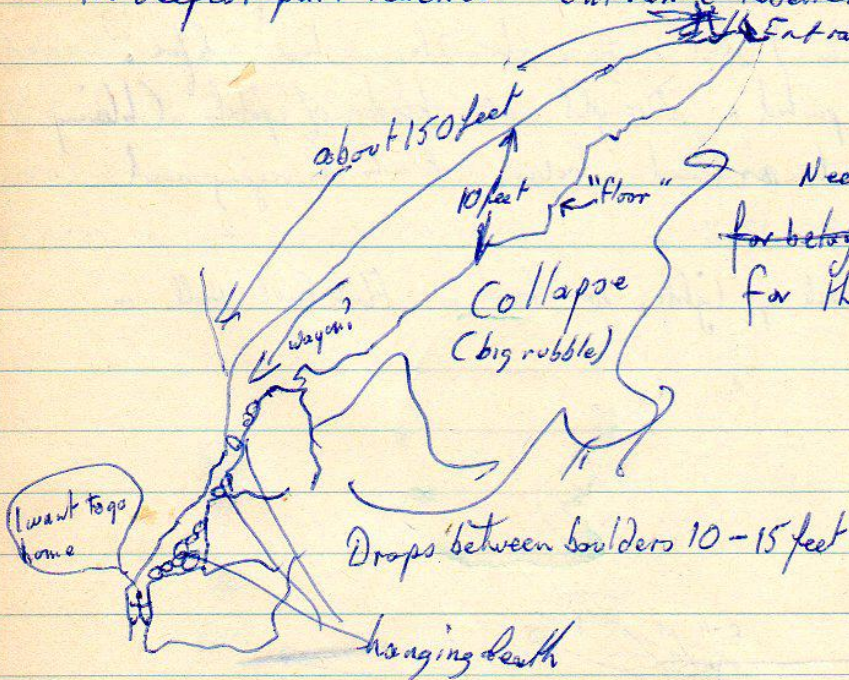 deepest part
Entra
about 150 feet
10 feet
"floor"
Nee
for belay
for th
Collapse
(big rubble)
way on?
I want to go
home
Drops between boulders 10-15 feet
hanging death